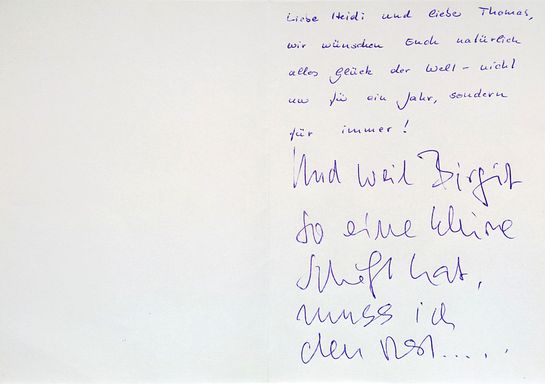 Liebe Heidi und lieber Thomas,
wir wünschen Euch natürlich
alles Glück der Welt – nicht
nur für ein Jahr, sondern
für immer!
Und weil Birgit
so eine kleine
Schrift hat,
muss ich
den Rest.....